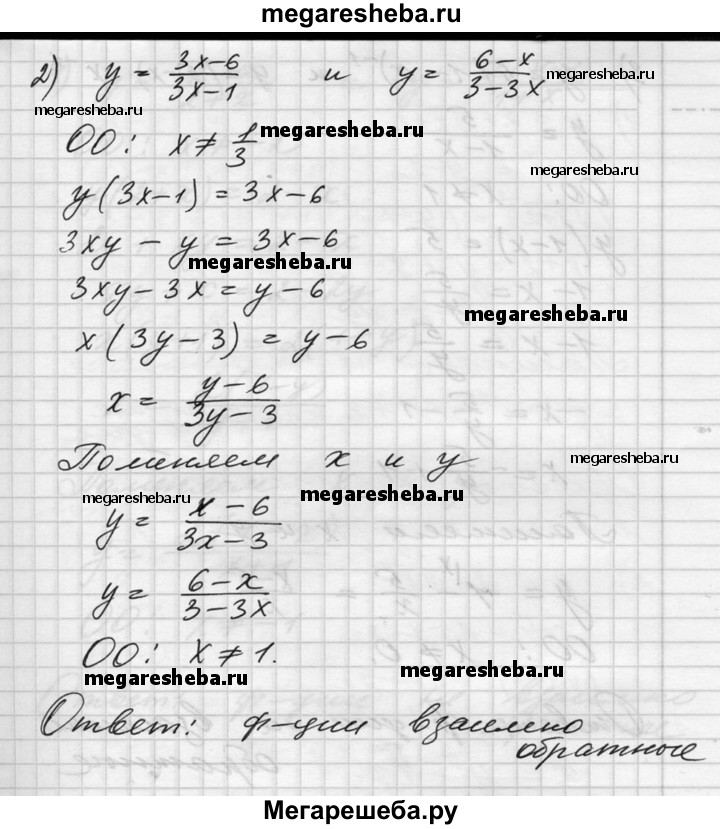 megaresheba.ru
2) y = (3x-6)/(3x-1) и y = (6-x)/(3-3x) megaresheba.ru
megaresheba.ru
ОО: x ≠ 1/3 megaresheba.ru
megaresheba.ru
y(3x-1) = 3x-6
3xy - y = 3x-6
megaresheba.ru
3xy-3x = y-6
megaresheba.ru
x(3y-3) = y-6
x = (y-6)/(3y-3)
Поменяем x и y megaresheba.ru
megaresheba.ru megaresheba.ru
y = (x-6)/(3x-3)
y = (6-x)/(3-3x)
ОО: x ≠ 1.
megaresheba.ru megaresheba.ru
Ответ: ф-ции взаимно
обратные
Мегарешеба.ру